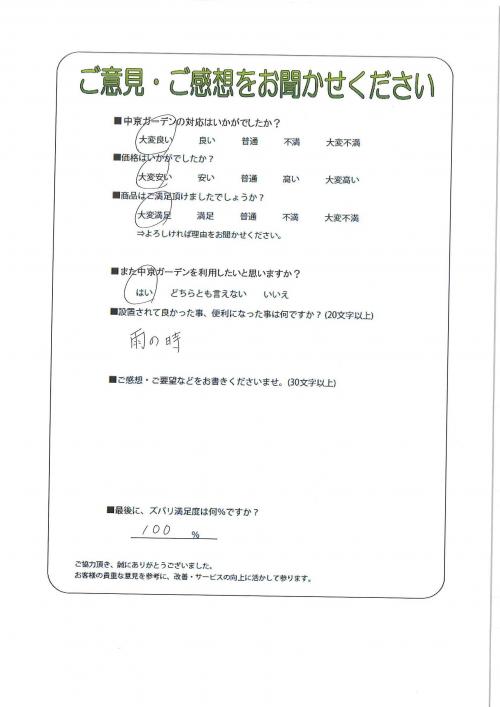 ご意見・ご感想をお聞かせください
■中京ガーデンの対応はいかがでしたか？
大変良い 良い 普通 不満 大変不満
■価格はいかがでしたか？
大変安い 安い 普通 高い 大変高い
■商品はご満足頂けましたでしょうか？
大変満足 満足 普通 不満 大変不満
⇒よろしければ理由をお聞かせください。
■また中京ガーデンを利用したいと思いますか？
はい どちらとも言えない いいえ
■設置されて良かった事、便利になった事は何ですか？(20文字以上)
雨の時
■ご感想・ご要望などをお書きくださいませ。(30文字以上)
■最後に、ズバリ満足度は何%ですか？
100 %
ご協力頂き、誠にありがとうございました。
お客様の貴重な意見を参考に、改善・サービスの向上に活かして参ります。